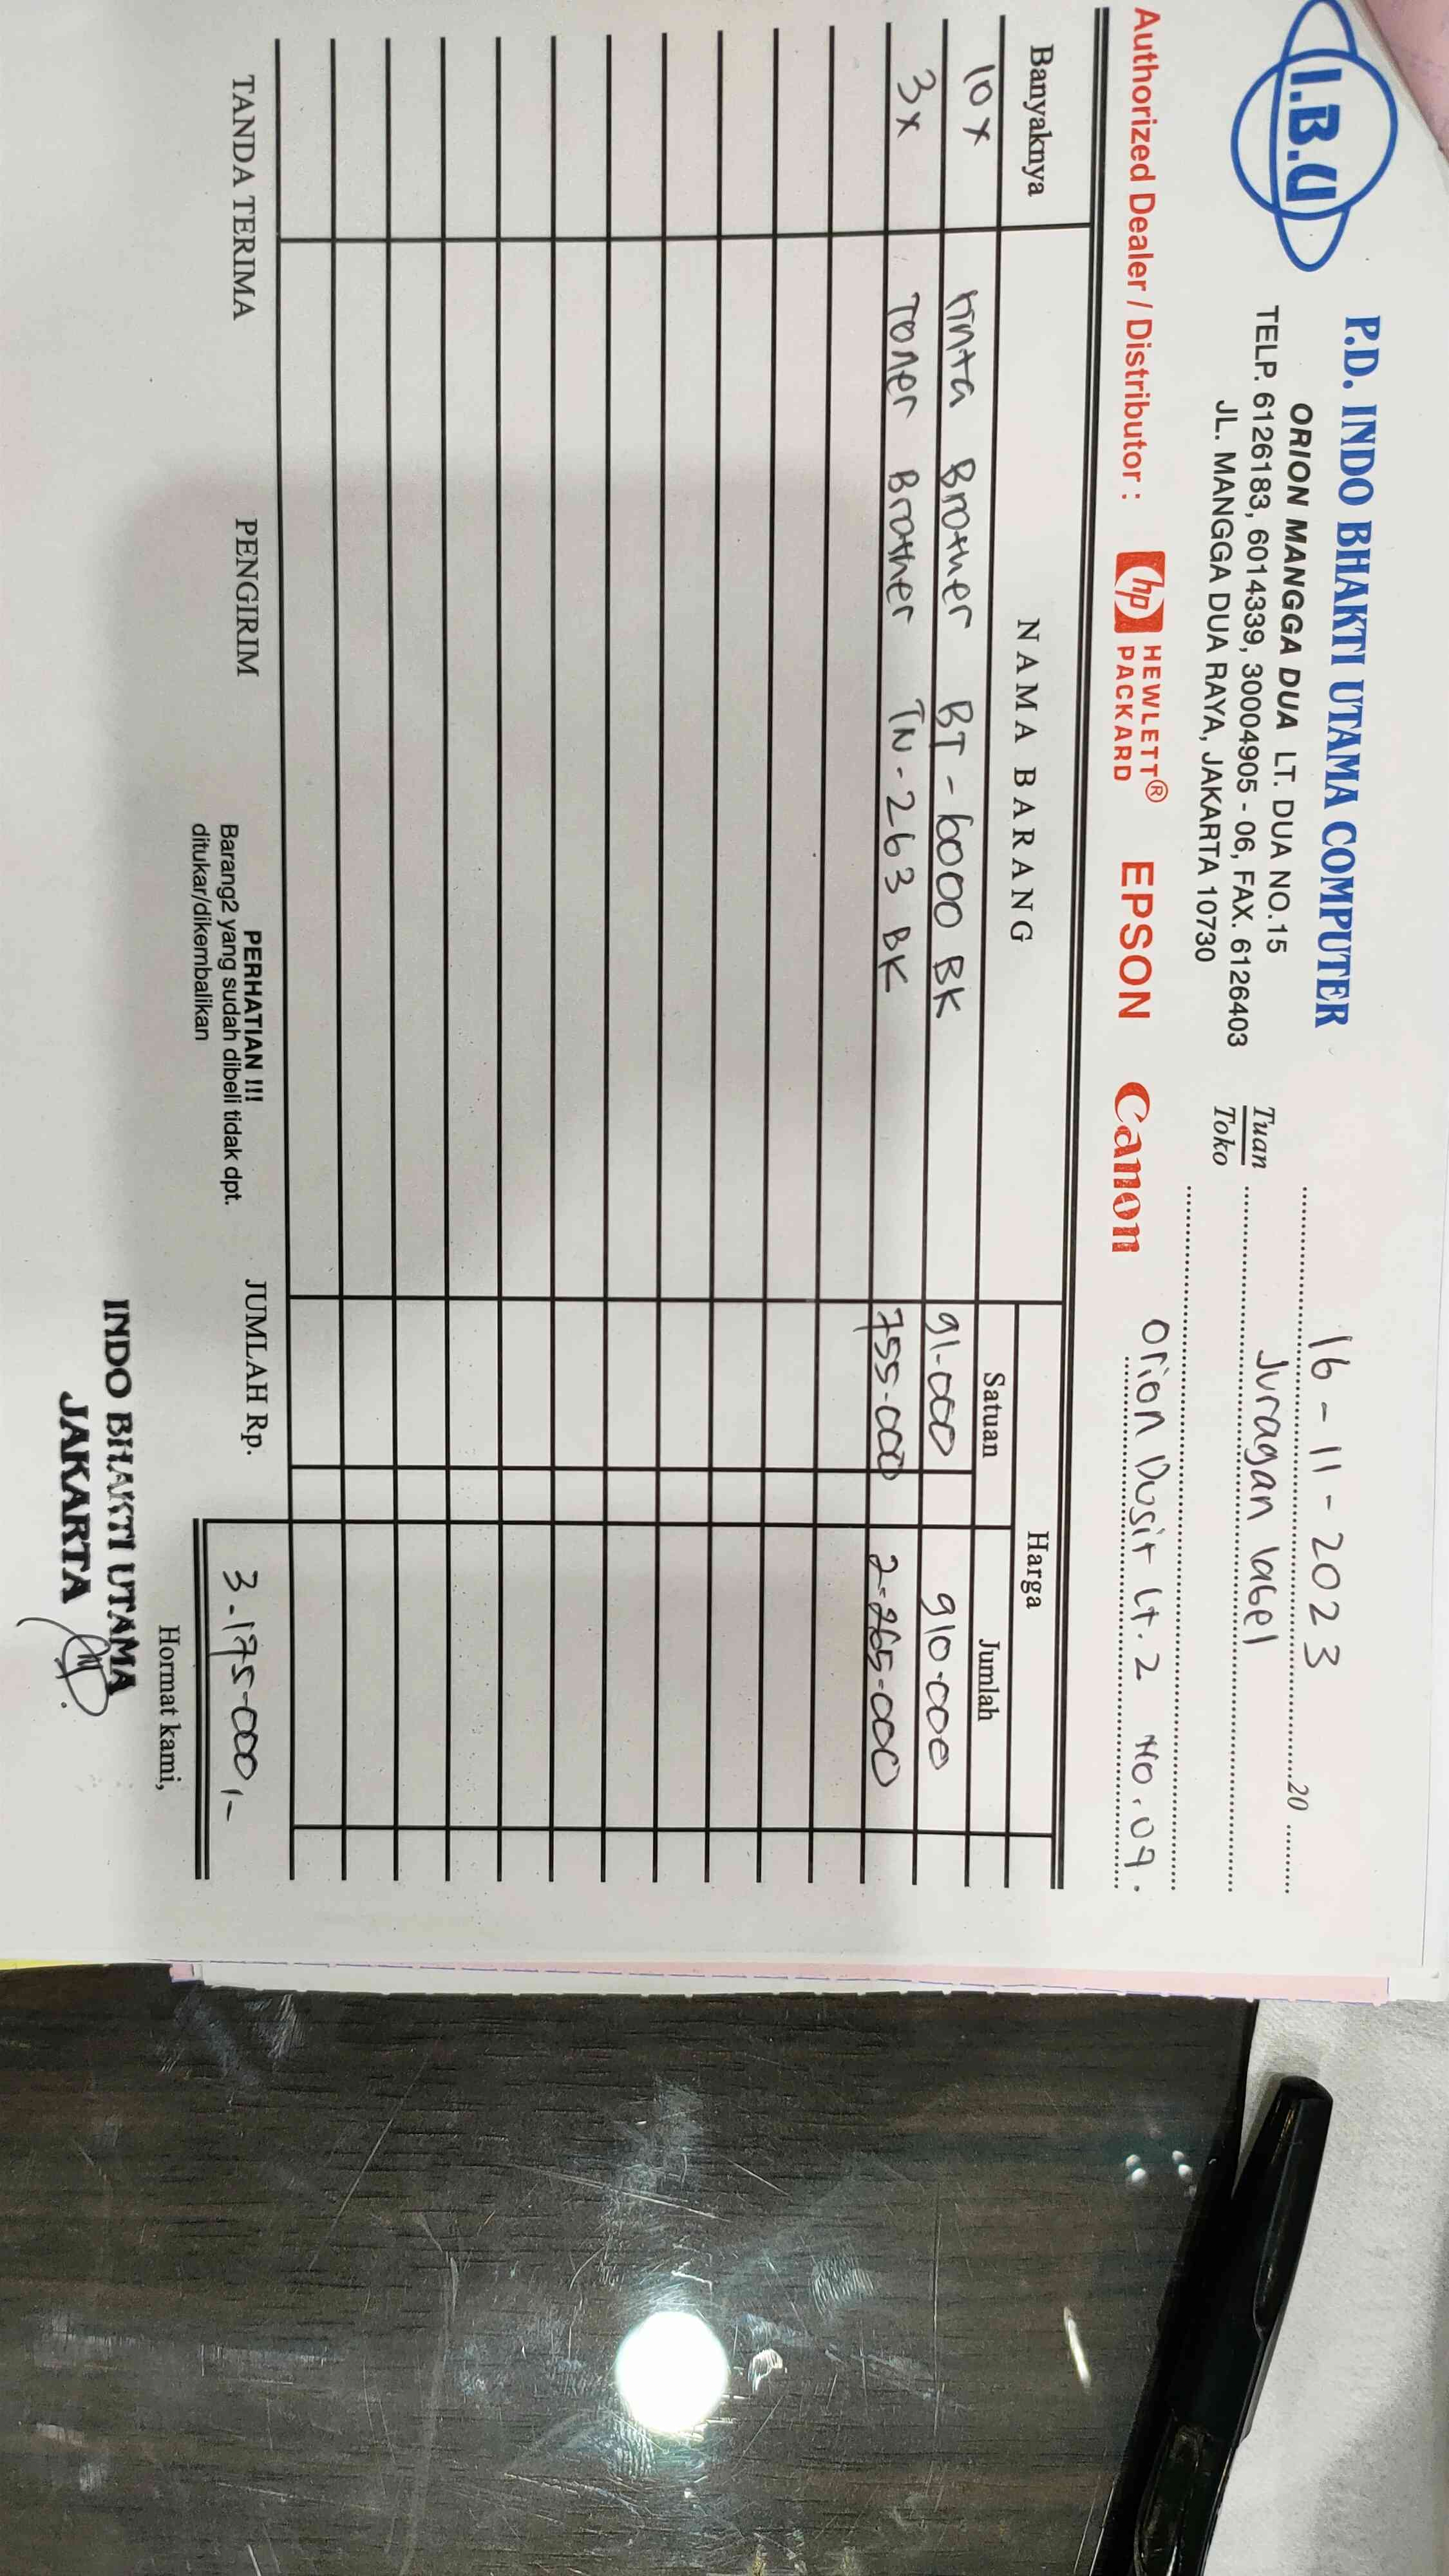 I.B.U
P.D. INDO BHAKTI UTAMA COMPUTER
ORION MANGGA DUA LT. DUA NO.15
TELP. 6126183, 6014339, 30004905 - 06, FAX. 6126403
JL. MANGGA DUA RAYA, JAKARTA 10730
16 - 11 - 2023 20
Tuan
Toko
Juragan label
Orion Dusit Lt. 2 No. 09.
Authorized Dealer / Distributor : hp HEWLETT® PACKARD EPSON Canon
Banyaknya NAMA BARANG Harga
Satuan Jumlah
10x Tinta Brother BT - 6000 BK 91.000 910.000
3x Toner Brother TN - 263 BK 755.000 2.265.000
TANDA TERIMA PENGIRIM PERHATIAN !!! JUMLAH Rp. 3.175.000,-
Barang2 yang sudah dibeli tidak dpt.
ditukar/dikembalikan
Hormat kami,
INDO BHAKTI UTAMA
JAKARTA